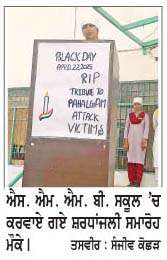 BLACK DAY
APRIL 22, 2025
RIP
TRIBUTE TO
PAHALGAM
ATTACK
VICTIMS
ਐਸ. ਐਮ. ਐਮ. ਬੀ. ਸਕੂਲ 'ਚ
ਕਰਵਾਏ ਗਏ ਸ਼ਰਧਾਂਜਲੀ ਸਮਾਰੋਹ
ਮੌਕੇ। ਤਸਵੀਰ : ਸੰਜੀਵ ਕੋਛੜ